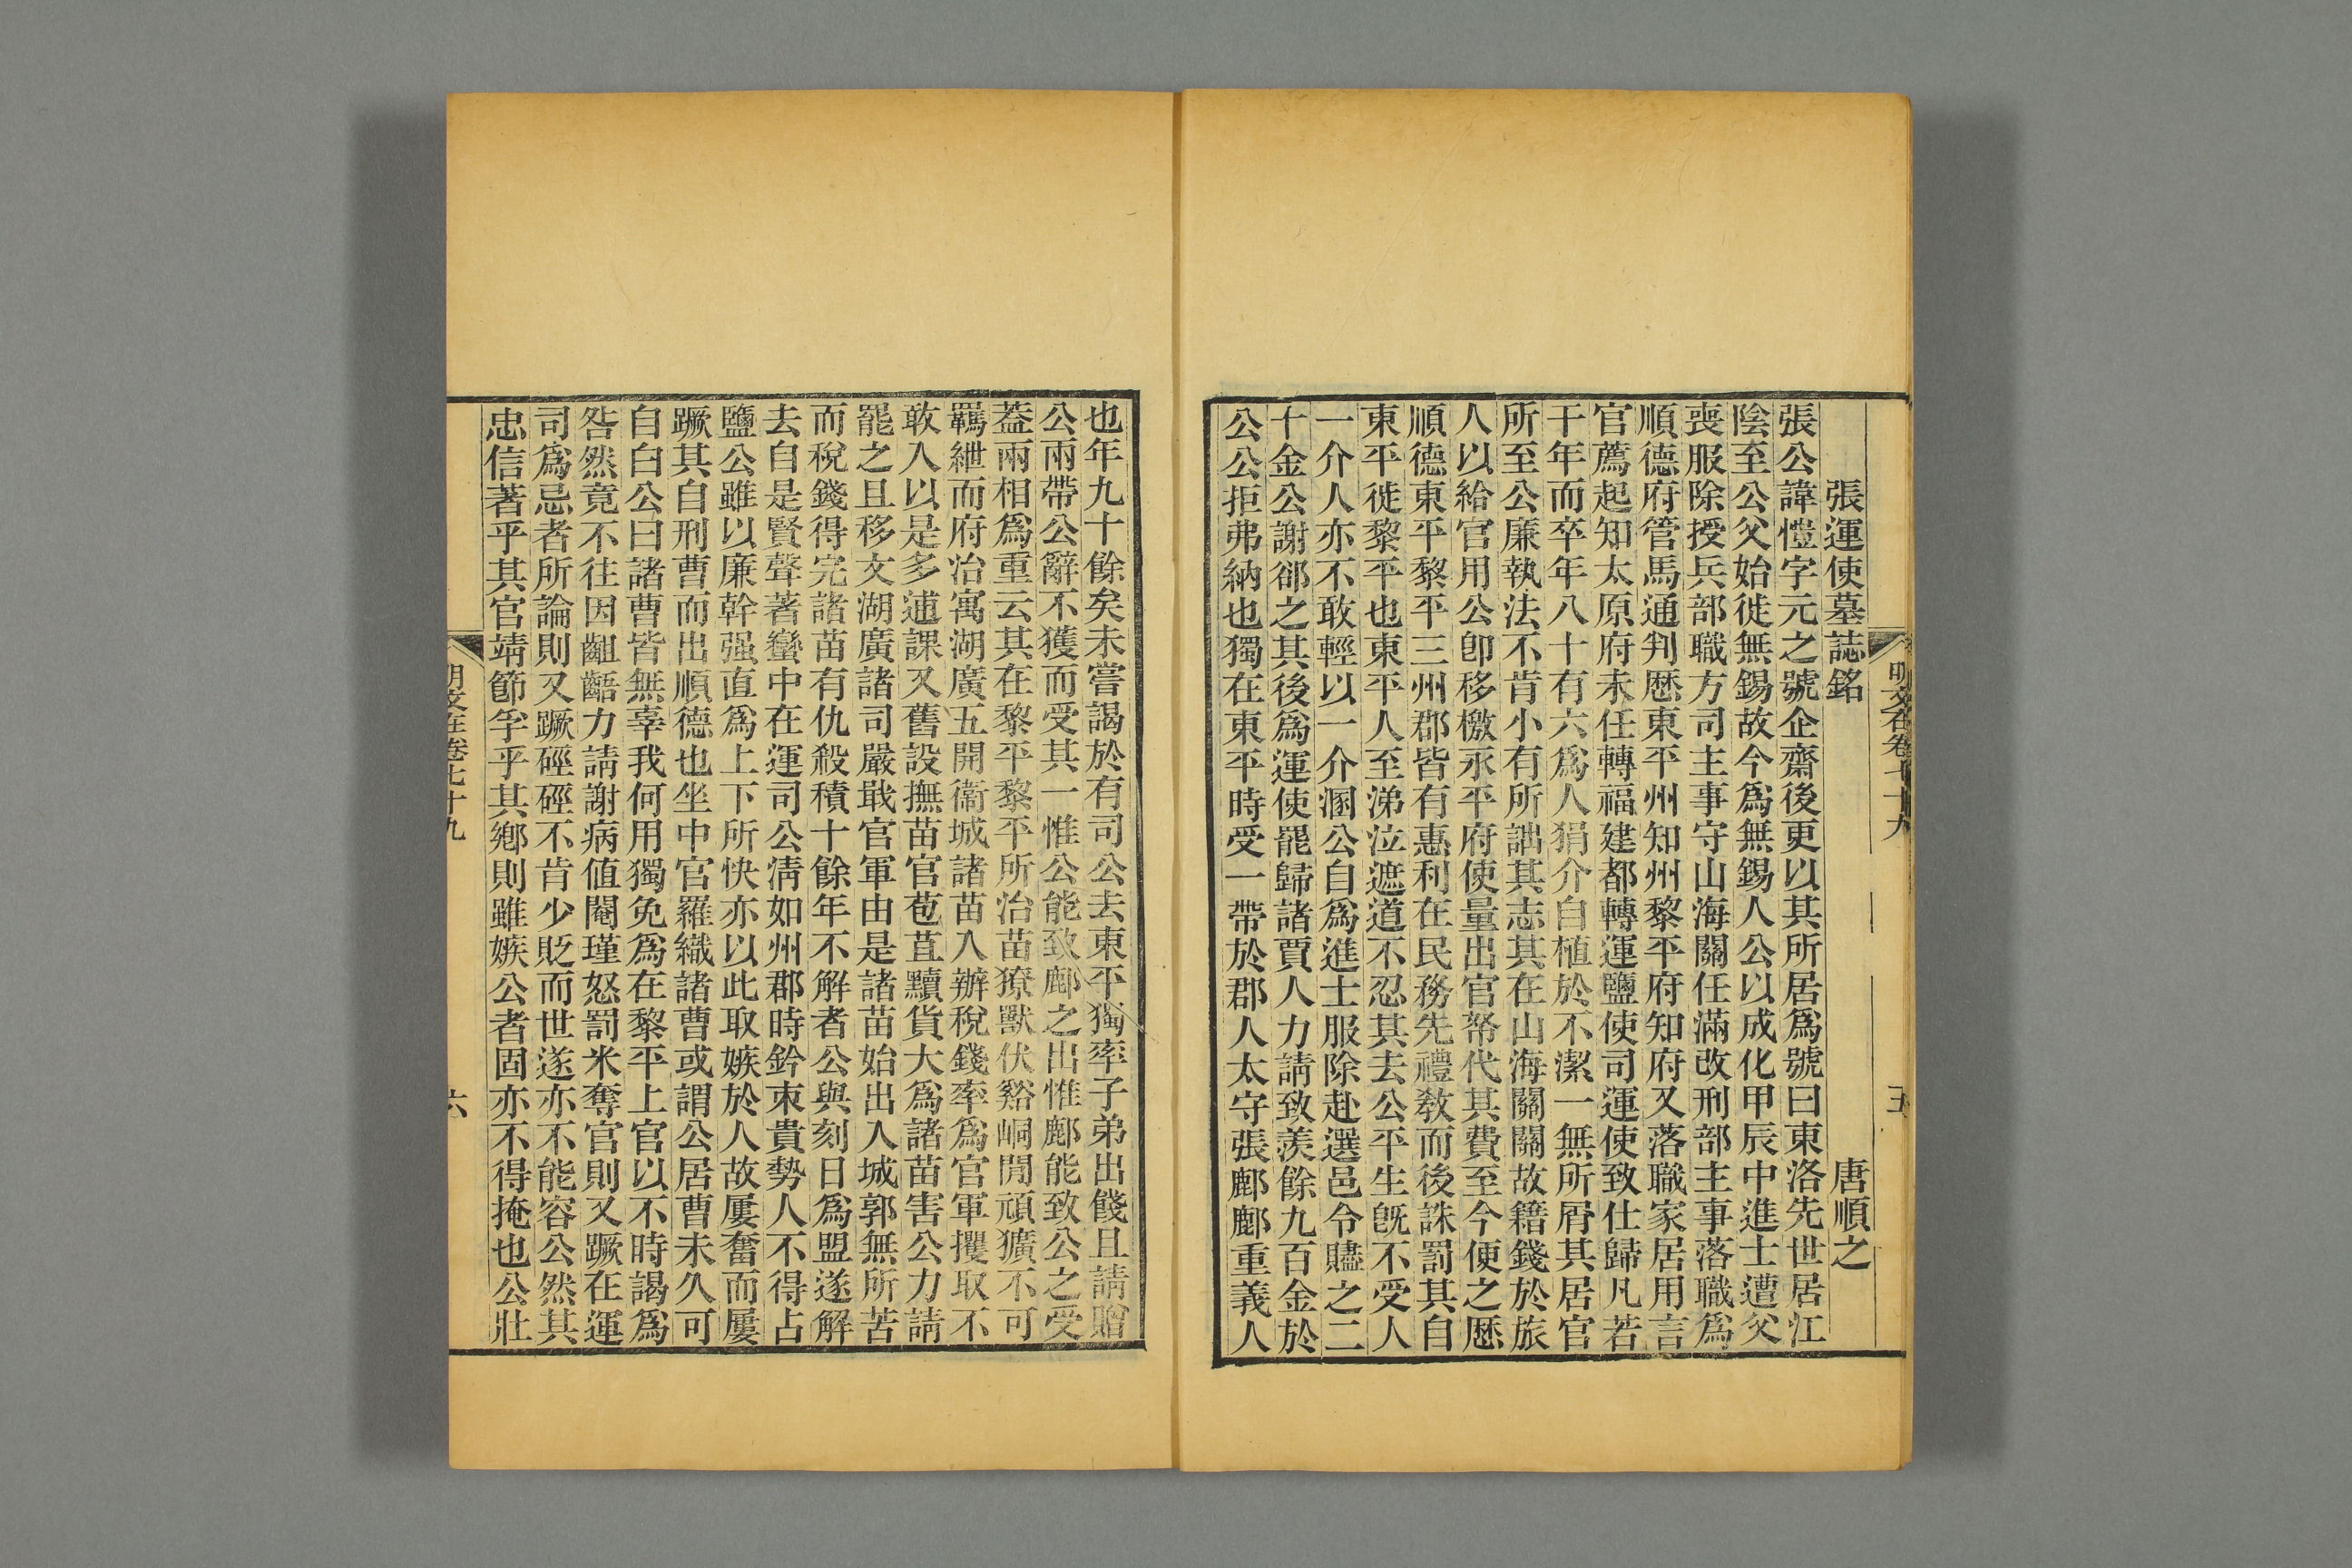 張運使墓誌銘 唐順之
張公諱愷字元之號企齋後更以其所居爲號曰東洛先世居江
陰至公父始徙無錫故今爲無錫人公以成化甲辰中進士遭父
喪服除授兵部職方司主事守山海關任滿改刑部主事落職爲
順德府管馬通判歷東平州知州黎平府知府又落職家居用言
官薦起知太原府未任轉福建都轉運鹽使司運使致仕歸凡若
干年而卒年八十有六爲人狷介自植於不潔一無所屑其居官
所至公廉執法不肯小有所詘其志其在山海關關故籍錢於旅
人以給官用公卽移檄永平府使量出官帑代其費至今便之歷
順德東平黎平三州郡皆有惠利在民務先禮敎而後誅罰其自
東平徙黎平也東平人至涕泣遮道不忍其去公平生旣不受人
一介人亦不敢輕以一介溷公自爲進士服除赴選邑令贐之二
十金公謝郤之其後爲運使罷歸諸賈人力請致羨餘九百金於
公公拒弗納也獨在東平時受一帶於郡人太守張鄜鄜重義人
也年九十餘矣未嘗謁於有司公去東平獨率子弟出餞且請贈
公兩帶公辭不獲而受其一惟公能致鄜之出惟鄜能致公之受
蓋兩相爲重云其在黎平黎平所治苗獠獸伏谿峒閒頑獷不可
羈紲而府治寓湖廣五開衞城諸苗入辦稅錢率爲官軍攫取不
敢入以是多逋課又舊設撫苗官苞苴黷貨大爲諸苗害公力請
罷之且移文湖廣諸司嚴戢官軍由是諸苗始出入城郭無所苦
而稅錢得完諸苗有仇殺積十餘年不解者公與刻日爲盟遂解
去自是賢聲著蠻中在運司公淸如州郡時鈐束貴勢人不得占
鹽公雖以廉幹强直爲上下所快亦以此取嫉於人故屢奮而屢
蹶其自刑曹而出順德也坐中官羅織諸曹或謂公居曹未久可
自白公曰諸曹皆無辜我何用獨免爲在黎平上官以不時謁爲
咎然竟不往因齟齬力請謝病値閹瑾怒罰米奪官則又蹶在運
司爲忌者所論則又蹶硜硜不肯少貶而世遂亦不能容公然其
忠信著乎其官靖節孚乎其鄕則雖嫉公者固亦不得掩也公壯
明文在卷七十九 六